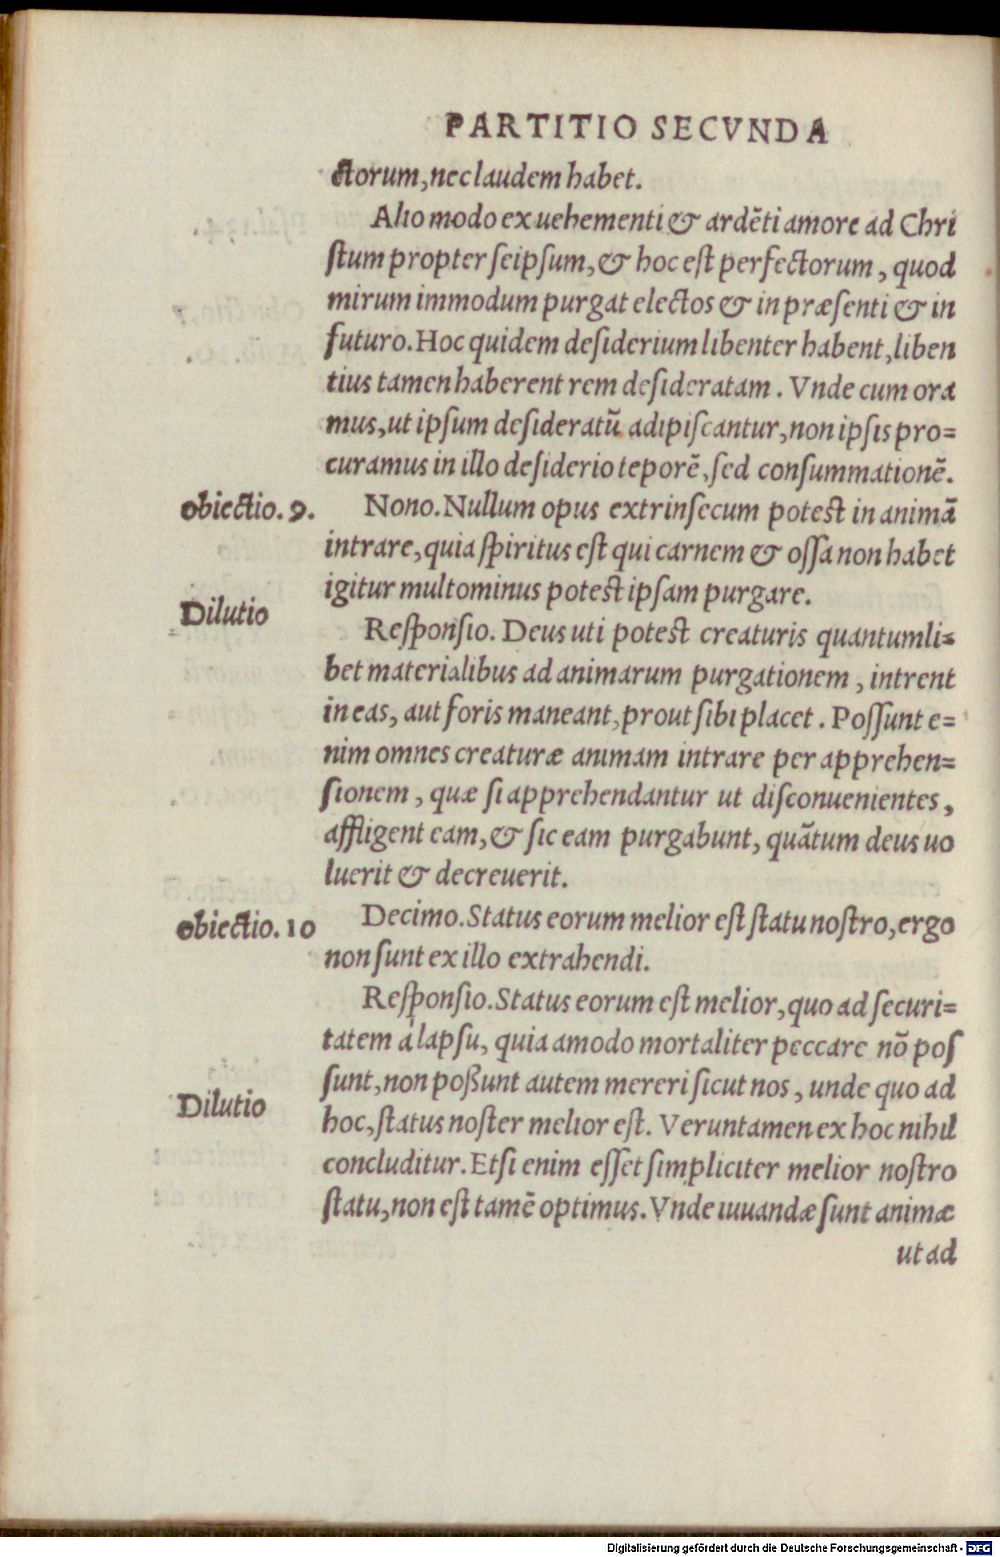 PARTITIO SECVNDA
ctorum, nec laudem habet.
Alio modo ex uehementi & ardẽti amore ad Chri
stum propter seipsum, & hoc est perfectorum, quod
mirum immodum purgat electos & in præsenti & in
futuro. Hoc quidem desiderium libenter habent, liben
tius tamen haberent rem desideratam. Vnde cum ora
mus, ut ipsum desideratũ adipiscantur, non ipsis pro=
curamus in illo desiderio teporẽ, sed consummationẽ.
obiectio. 9.
Nono. Nullum opus extrinsecum potest in animã
intrare, quia spiritus est qui carnem & ossa non habet
igitur multominus potest ipsam purgare.
Dilutio
Responsio. Deus uti potest creaturis quantumli=
bet materialibus ad animarum purgationem, intrent
in eas, aut foris maneant, prout sibi placet. Possunt e=
nim omnes creaturæ animam intrare per apprehen=
sionem, quæ si apprehendantur ut disconuenientes,
affligent eam, & sic eam purgabunt, quãtum deus uo
luerit & decreuerit.
obiectio. 10
Decimo. Status eorum melior est statu nostro, ergo
non sunt ex illo extrahendi.
Responsio. Status eorum est melior, quo ad securi=
tatem à lapsu, quia amodo mortaliter peccare nõ pos
sunt, non poßunt autem mereri sicut nos, unde quo ad
Dilutio
hoc, status noster melior est. Veruntamen ex hoc nihil
concluditur. Etsi enim esset simpliciter melior nostro
statu, non est tamẽ optimus. Vnde iuuandæ sunt animæ
ut ad
Digitalisierung gefördert durch die Deutsche Forschungsgemeinschaft - DFG